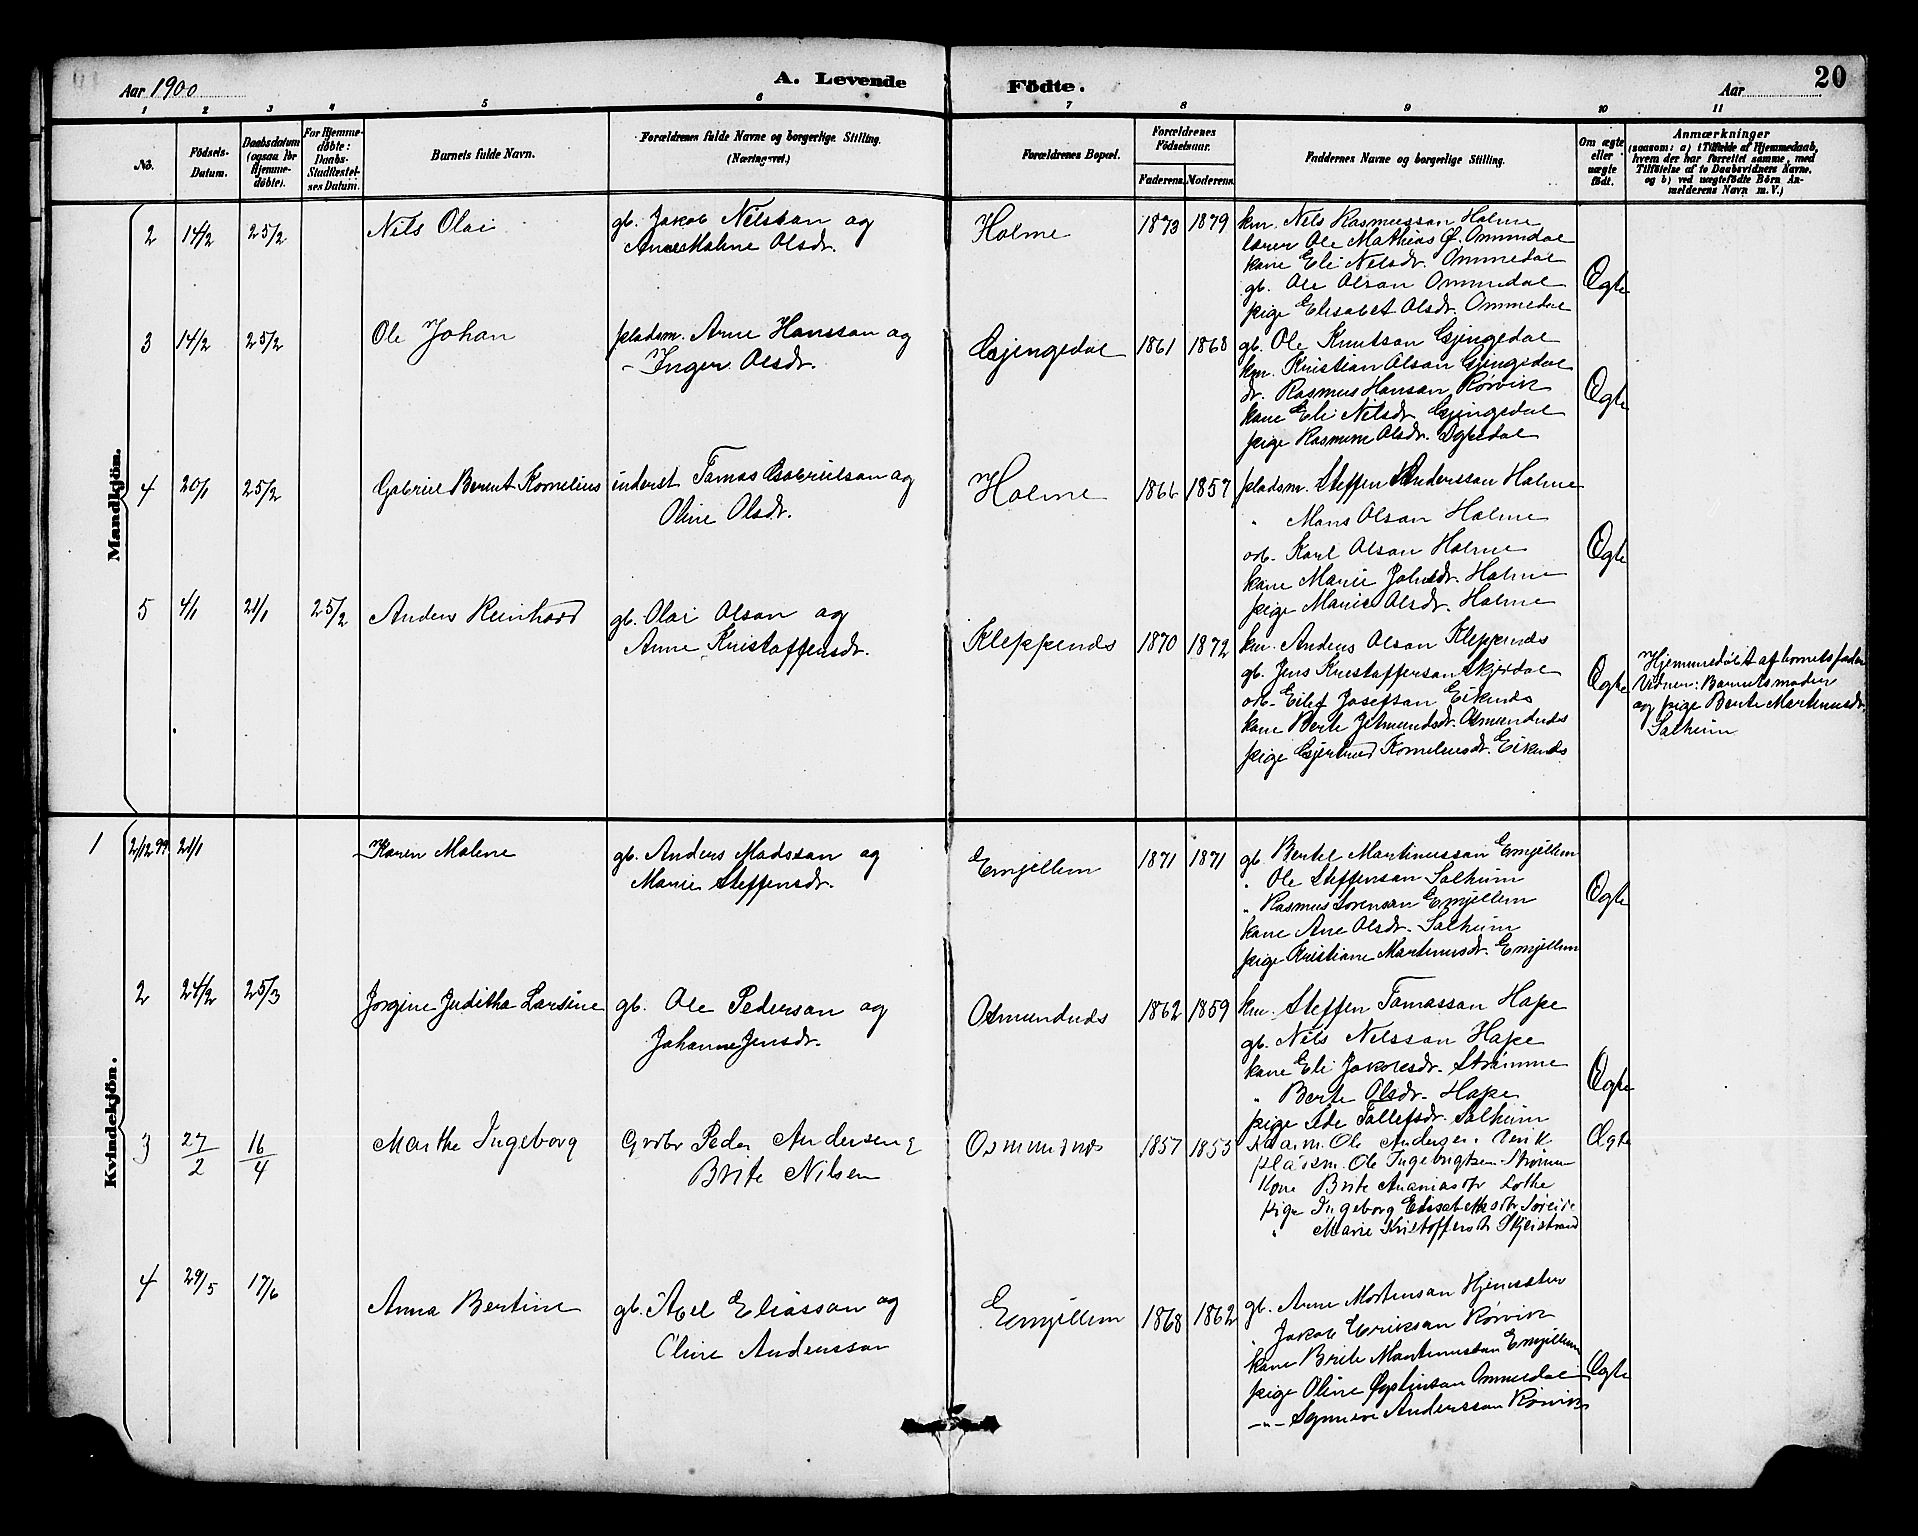 Aar 1900
A. Levende
Födte.
Aar
20
1 2 3 4 5 6 7 8 9 10 11
No.
Födsels-
Datum.
Daabsdatum
(ogsaa for
Hjemme-
döbte).
For Hjemme-
döbte:
Daabs-
Stadfæstel-
ses Datum.
Barnets fulde Navn.
Forældrenes fulde Navne og borgerlige Stilling.
(Næringsvei.)
Forældrenes Bopæl.
Forældrenes
Födselsaar.
Faderens. Moderens.
Faddernes Navne og borgerlige Stilling.
Om ægte
eller
uægte
født.
Anmærkninger
(saasom: a) i Tilfælde af Hjemmedaab,
hvem der har forrettet samme, med
Tilföielse af to Daabsvidners Navne,
og b) ved uægtefödte Börn An-
melderens Navn m. V.)
Mandkjön.
2 14/2 25/2 Nils Olai
gb. Jakob Nilssøn og
Anne Malene Olsdr.
Holme 1873 1879
km. Nils Rasmussøn Holme
lærer Ole Mathias Ø. Ommedal
kone Eli Nilsdr. Ommedal
gb. Ole Olsøn Ommedal
pige Elisabet Olsdr. Ommedal
Ægte
3 14/2 25/2 Ole Johan
pladsm. Arne Hanssøn og
Inger Olsdr.
Gjengedal 1861 1868
gb. Ole Knutsøn Gjengedal
km. Kristian Olsøn Gjengedal
dr. Rasmus Hansøn Rørvik
kone Eli Nilsdr. Gjengedal
pige Rasmine Olsdr.
Ægte
4 20/1 25/2 Gabriel Bernt Kornelius
inderst Tomas Gabrielsøn og
Oline Olsdr.
Holme 1866 1857
pladsm. Steffen Anderssøn Holme
" Mons Olsøn Holme
Karl Olsøn Holme
kone Marie Johnsdr. Holme
pige Marie Olsdr. Holme
Ægte
5 4/1 21/1 25/2 Anders Reinhard
gb. Olai Olsøn og
Anne Kristoffersdr.
Kleppenes 1870 1872
km. Anders Olsøn Kleppenes
gb. Jens Kristoffersøn Skjerdal
Eilef Josefsøn Eikenes
kone Berte Jetmundsdr. Osmundnes
pige Gjertrud Korneliusdr. Eikenes
Ægte
Hjemmedøbt af barnets fader
Vidner: Barnets moder
og pige Berte Martinusdr.
Solheim
Kvindekjön.
1 2/12 99 21/1 Karen Malene
gb. Anders Madssøn og
Marie Steffensdr.
Emjellem 1871 1871
gb. Bertel Martinussøn Emjellem
" Ole Steffensøn Solheim
" Rasmus Sørensøn Emjellem
kone Ane Olsdr. Solheim
pige Kristiane Martinusdr. Emjellem
Ægte
2 24/2 25/3 Jørgine Juditha Larsine
gb. Ole Pedersøn og
Johanne Jensdr.
Osmundnes 1862 1859
km. Steffen Tomassøn Hope
gb. Nils Nilssøn Hope
kone Eli Jakobsdr. Strømme
" Berte Olsdr. Hope
pige Ade Tollefsdr. Solheim
Ægte
3 27/2 16/4 Marthe Ingeborg
Grdbr Peder Andersen &
Brite Nilsen
Osmundnæs 1857 1853
Ole Andersen
pladsm. Ole Ingebrigtsen Strømme
Kone Brite Ananiasdtr Lothe
Pige Ingeborg Elisabet
" Marie Kristoffersdtr Skjeistrand
Ægte
4 29/5 17/6 Anna Bertine
gb. Axel Eliassøn og
Oline Anderssøn
Emjellem 1868 1862
gb. Arne Mortensøn
" Jakob Eriksøn Rørvik
kone Brite Martinussøn Emjellem
pige Oline Øysteinsøn Ommedal
-"- Synneve Anderssøn Rørvik
Ægte